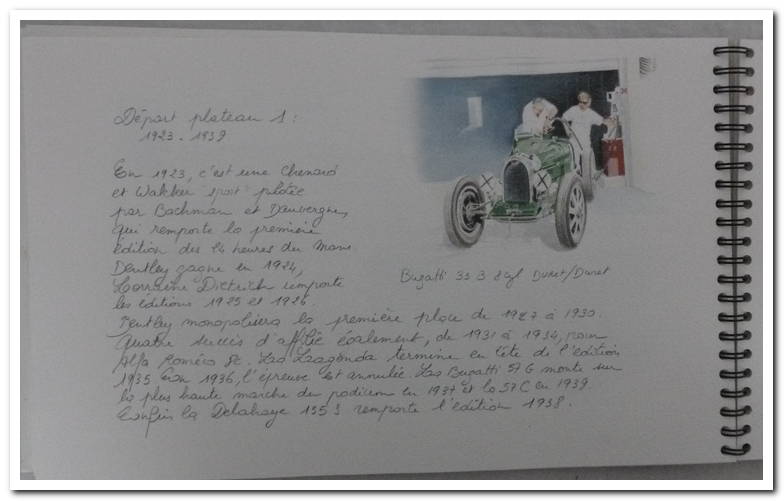 Départ plateau 1 :
1923 - 1939
En 1923, c'est une Chenard
et Walkker "sport" pilotée
par Bachman et Dauvergne,
qui remporte la première
édition des 24 heures du Mans.
Bentley gagne en 1924,
Lorraine Dietrich remporte
les éditions 1925 et 1926.
Bentley monopolisera la première place de 1927 à 1930.
Quatre succès d'affilé également, de 1931 à 1934, pour
Alfa Roméro 8c. Las Laagonda termine en tête de l'édition
1935. En 1936, l'épreuve est annulée. Las Bugatti 57 G monte sur
la plus haute marche du podium en 1937 et la 57C en 1939.
Enfin la Delahaye 135 S remporte l'édition 1938.
Bugatti 35 B 8cyl Duret/Duret